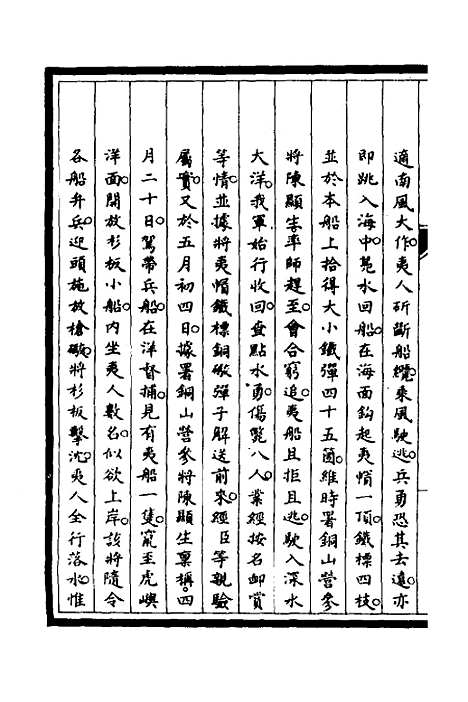 適南風大作。夷人斫斷船纜。乘風駛逃。兵勇恐其去遠。亦
即跳入海中。鳧水回船。在海面鈎起夷帽一頂。鐵標四枝。
並於本船上拾得大小鐵彈四十五箇。維時署銅山營參
將陳顯生率師趕至。會合窮追。夷船且拒且逃。駛入深水
大洋。我軍始行收回。查點水勇。傷斃八人。業經按名卹賞
等情。並據將夷帽鐵標銅礮彈子解送前來。經臣等親驗
屬實。又於五月初四日。據署銅山營參將陳顯生稟稱。四
月二十日。駕帶兵船。在洋督捕。見有夷船一隻。竄至虎嶼
洋面。開放杉板小船。內坐夷人數名。似欲上岸。該將隨令
各船弁兵。迎頭施放槍礮。將杉板擊沈。夷人全行落水。惟